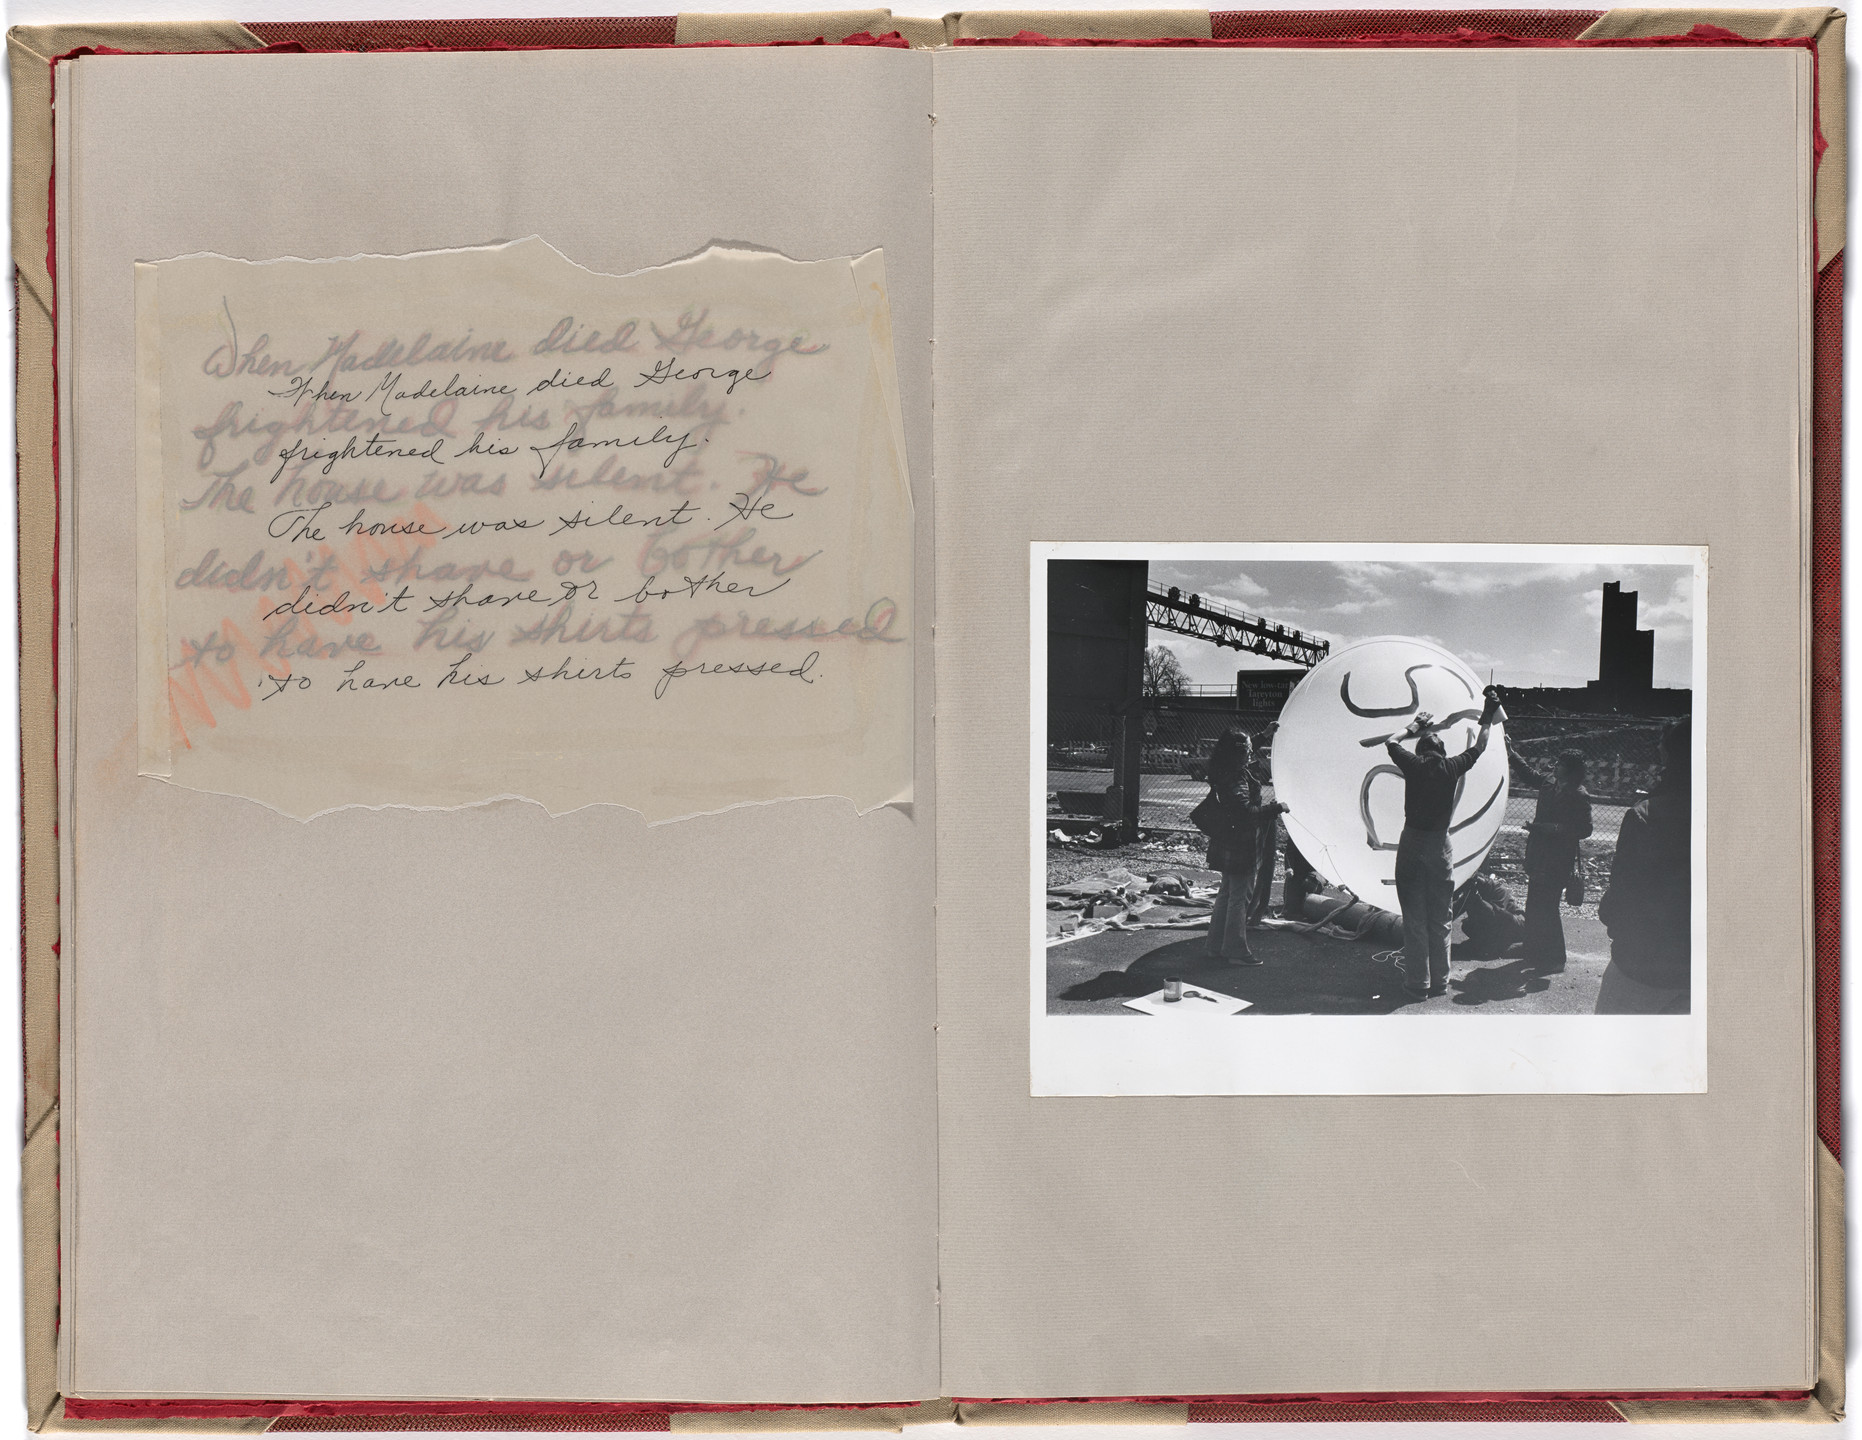 When Madelaine died George
When Madelaine died George
frightened his family.
frightened his family.
The house was silent. He
The house was silent. He
didn't shave or bother
didn't shave or bother
to have his shirts pressed
to have his shirts pressed.
New low-tar
Tareyton
lights